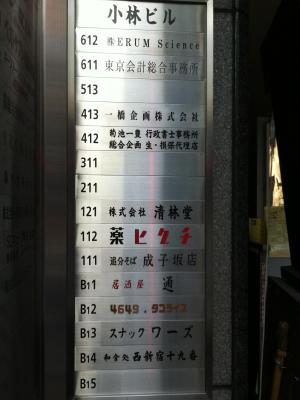 小林ビル
612 ㈱ERUM Science
611 東京会計総合事務所
513
413 一橋企画株式会社
412 菊池一豊 行政書士事務所
総合企画 生・損保代理店
311
211
121 株式会社 清林堂
112 薬ヒグチ
111 追分そば 成子坂店
B11 居酒屋 通
B12 4649.タコライス
B13 スナック ワーズ
B14 和食処 西新宿十九番
B15